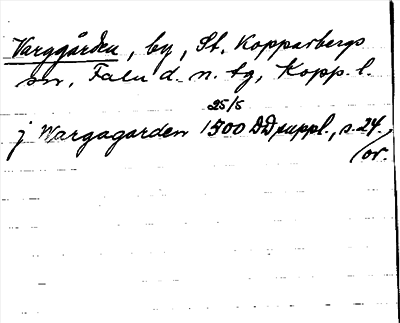 Varggården, by, St. Kopparbergs
sn, Falu d. n. tg, Kopp. l.
25/5
j Wargagarden 1500 DD suppl., s. 24.
/or.